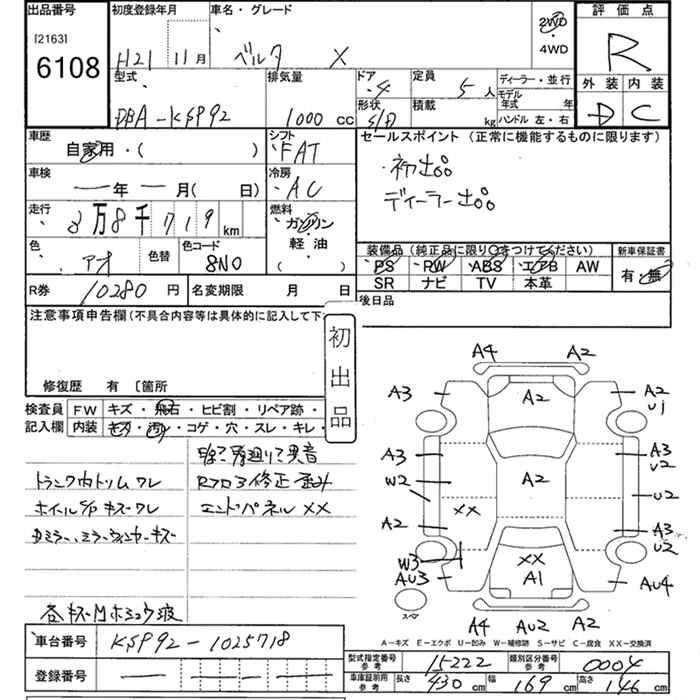 出品番号 初度登録年月 車名・グレード 2WD ・4WD 評価点
[2163]
6108
H21 11月 ベルタ X R
型式 排気量 ドア 定員 ディーラー・並行 外装 内装
DBA-KSP92 1000 cc 4 5人 モデル年式 年 D C
形状 積載 kg ハンドル 左・右
車歴 シフト セールスポイント (正常に機能するものに限ります)
自家用・( ) FAT ・初出品
車検 冷房 ディーラー出品
ー年ー月( 日) AC
走行 燃料
8万8千719km ガソリン
軽・油
( )
色 色替 色コード 装備品 (純正品に限り○をつけてください) 新車保証書
アオ 8N0 PS RW ABS エアB AW 有・無
SR ナビ TV 本革
R券 10280円 名変期限 月 日 後日品
注意事項申告欄(不具合内容等は具体的に記入して下
初出品
修復歴 有 〔箇所
検査員 FW キズ・飛石・ヒビ割・リペア跡・
記入欄 内装 キズ・汚レ・コゲ・穴・スレ・キレ・
異音
トランク内トリム ワレ Rフロア修正 歪み
ホイルC/P キズワレ エンドパネル XX
ミラー、ミラーウィンカーキズ
各キズ凹
車台番号 KSP92-1025718
登録番号
A4 A2
A3 A2 A2 U1
A3 A3 U2
W2 A2 U2
A2 XX A3 U2
W3 XX
AU3 A1 AU4
スペア
A4 AU2 A2
A－キズ E－エクボ U－凹み W－補修跡 S－サビ C－腐食 XX－交換済
型式指定番号 参考 15222 類別区分番号 参考 0004
車庫証明用 参考 長さ 430cm 幅 169cm 高さ 146cm